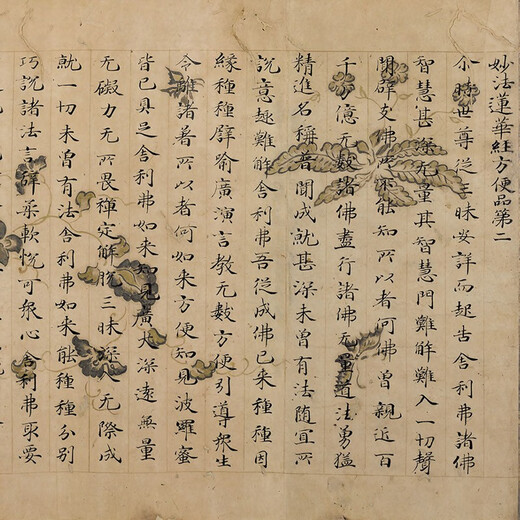 妙法蓮華經方便品第二
尒時世尊從三昧安詳而起告舍利弗諸佛
智慧甚深无量其智慧門難解難入一切聲
聞辟支佛所不能知所以者何佛曾親近百
千万億无數諸佛盡行諸佛无量道法勇猛
精進名稱普聞成就甚深未曾有法随宜所
說意趣難解舍利弗吾從成佛已来種種因
緣種種譬喻廣演言教无數方便引導衆生
令離諸著所以者何如来方便知見波羅蜜
皆已具足舍利弗如来知見廣大深遠無量
无礙力无所畏禪定解脫三昧深入无際成
就一切未曾有法舍利弗如来能種種分別
巧說諸法言辝柔軟悅可衆心舍利弗取要